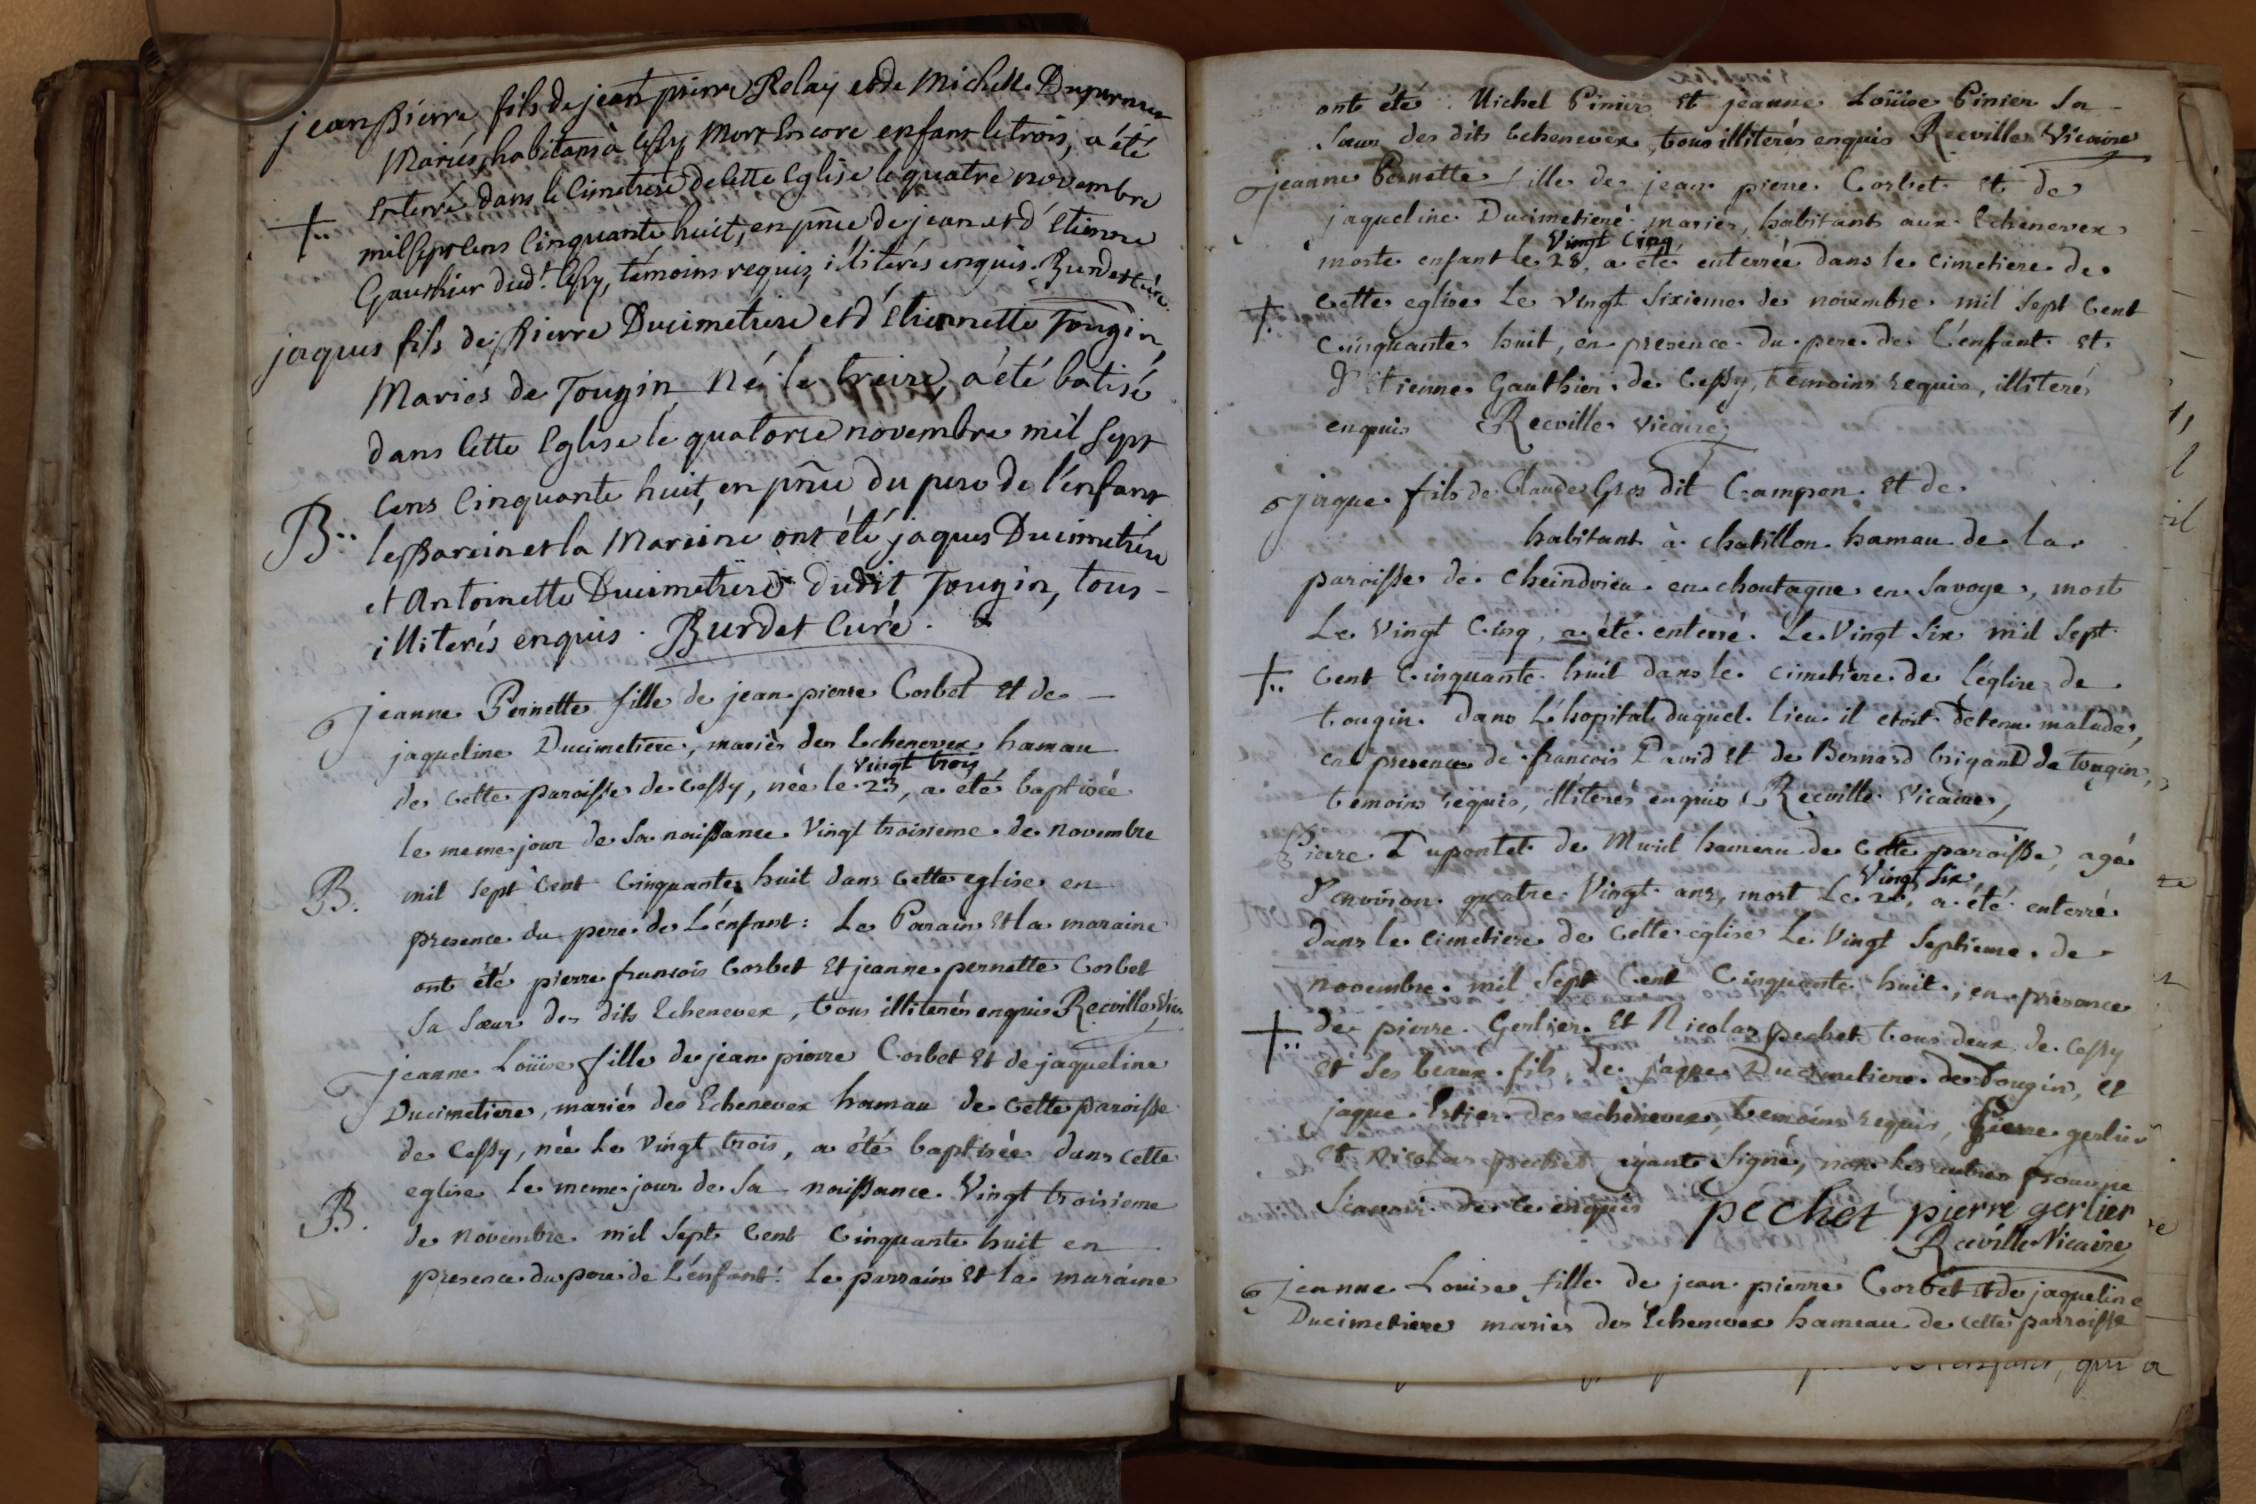 jean Pierre fils de jean pierre Relay et de Michelle Dupernex
Mariés, habitans à Cessy Mort Encore enfant le trois, a été
Enterré dans le Cimetiere de Cette Eglise le quatre novembre
†..
mil Sept Cens Cinquante huit, en pñce de jean et d'Etienne
Gauthier dud.t Cessy, témoins requis illiterés enquis. Burdet Curé.
jaques fils de Pierre Ducimetiere et d'Etiennette Tougin,
Mariés de Tougin Né le treize, a été batisé
dans Cette Eglise le quatorse novembre mil Sept
Cens Cinquante huit, en pñce du pere de l'enfant
B..
le Parein et la Mareine ont été jaques Ducimetière
et Antoinette Ducimetiere dudit Tougin, tous -
illiterés enquis. Burdet Curé.
jeanne Pernette fille de jean pierre Corbet et de -
jaqueline Ducimetiere, mariés des Echenevex hamau
vingt trois
de cette paroisse de Cessy, née le 23, a été baptisée
le meme jour de Sa naissance Vingt troisieme de novembre
B.
mil Sept Cent Cinquante huit dans cette eglise en
presence du pere de L'enfant : Le Parain et la maraine
ont été pierre francois Corbet et jeanne pernette Corbet
Sa Sœur des dits Echenevex, tous illiterés enquis Recville Vic.
jeanne Loüise fille de jean pierre Corbet et de jaqueline
Ducimetiere, mariés des Echenevex hamau de cette paroisse
de Cessy, née Le vingt trois, a été baptisée dans cette
eglise Le meme jour de Sa naissance Vingt troisieme
B.
de novembre mil Sept Cent Cinquante huit en
presence du pere de L'enfant : Le parrain et la maraine
ont été : Michel Pinier et jeanne Loüise Pinier Sa -
Sœur des dits Echenevex, tous illiterés enquis Recville Vicaire
jeanne Pernette fille de jean pierre Corbet et de
jaqueline Ducimetiere mariés, habitants aux Echenevex
Vingt Cinq
morte enfant le 25, a été enterrée dans le cimetiere de
†.
Cette eglise Le Vingt Sixieme de novembre mil Sept Cent
Cinquante huit, en presence du pere de L'enfant et
d'Etienne Gauthier de Cessy, temoins requis, illiterés
enquis Recville Vicaire
jaque fils de Claude Gros dit Campon et de
habitant à chatillon hamau de la
paroisse de cheindrieu en choutagne en Savoye, mort
Le Vingt Cinq, a été enterré Le Vingt Six mil Sept
†..
Cent Cinquante huit dans le cimetiere de l'église de
tougin dans L'hopital duquel lieu il etoit detenu malade,
en presence de francois David et de Bernard brigand de tougin,
temoins requis, illiterés enquis Recville Vicaire,
Pierre Dupontet de hameau de Cette paroisse, agé
Vingt Six
d'environ quatre Vingt ans, mort Le 26, a été enterré
dans le cimetiere de Cette eglise Le Vingt Septieme de
novembre mil Sept Cent Cinquante huit, en presence
†..
de pierre Gerlier et Nicolas pechet tous deux de Cessy
et Ses beaux fils, de jaque Ducimetiere de Tougin, et
jaque des echenevex, temoins requis, Pierre gerlier
et nicolas pechet ayants Signé, non Les autres pour ne
Scavoir de ce enquis pechet pierre gerlier
Recville Vicaire
jeanne Louise fille de jean pierre Corbet et de jaqueline
Ducimetiere mariés des Echenevex hameau de cette parroisse
qui a